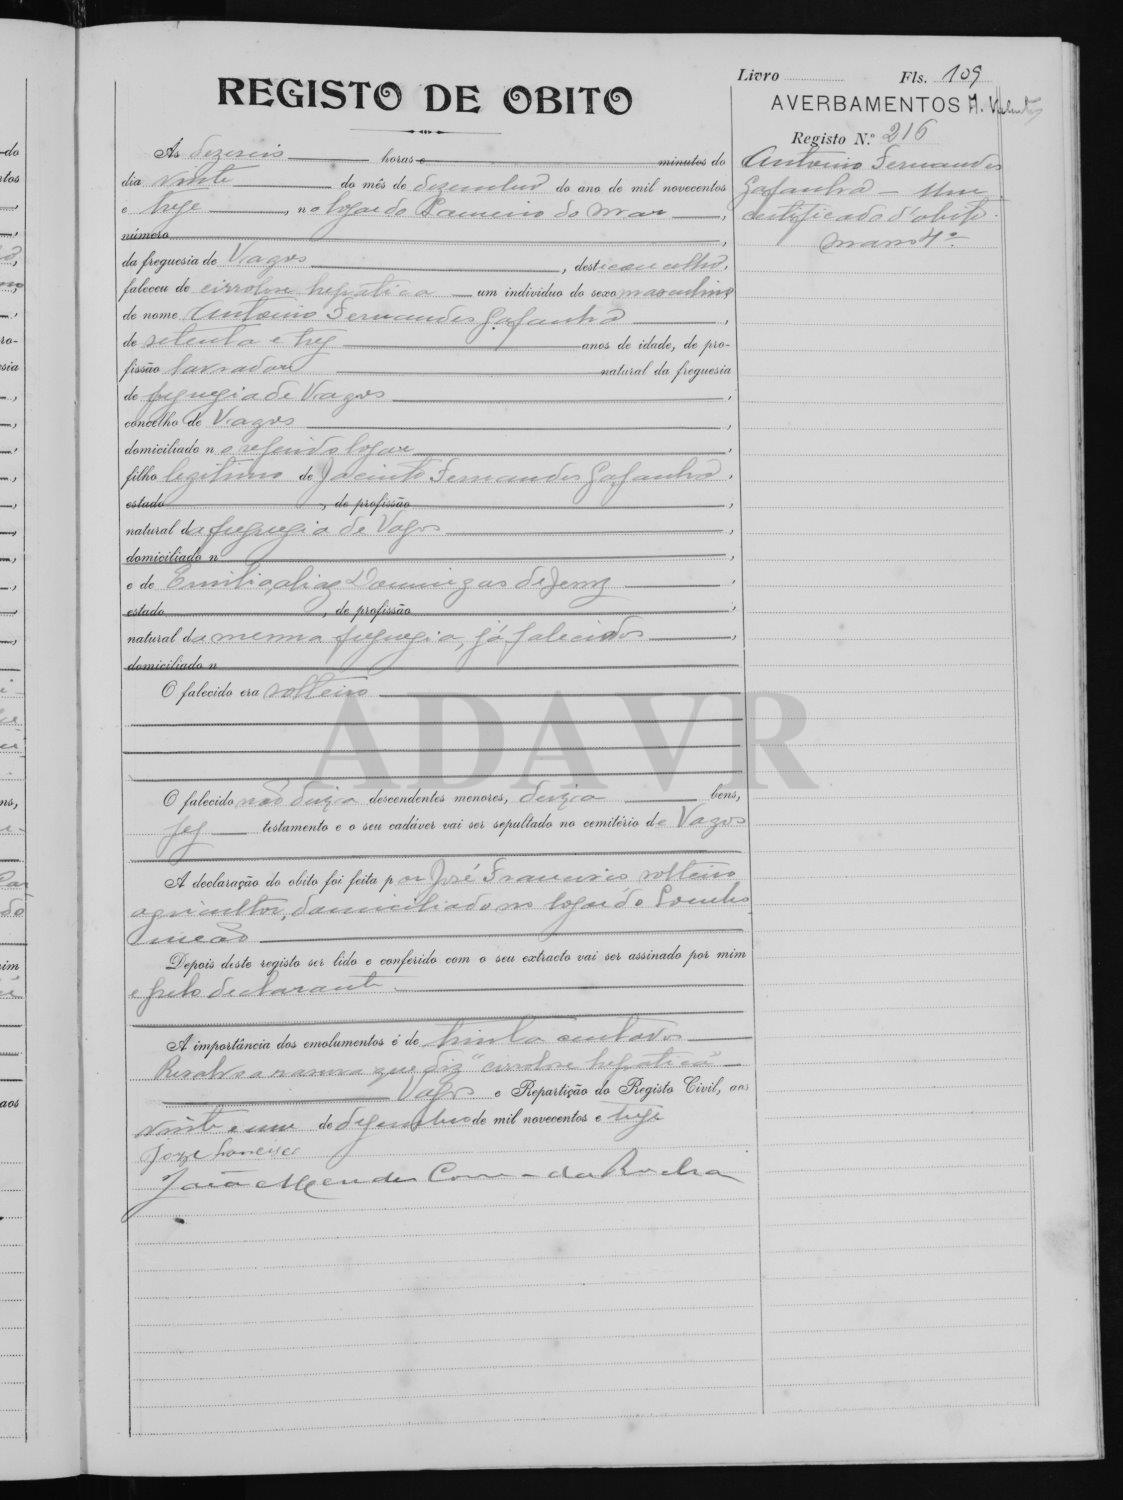 Livro Fls. 109
REGISTO DE OBITO
AVERBAMENTOS
Registo N.º 216
Antonio Fernandes
Gafanhã - Um
certificado d'obito
mass 4º
Ás dezeseis horas e minutos do
dia vinte do mês de dezembro do ano de mil novecentos
e treze, no logar do Parreiro do Mar,
número,
da freguesia de Vagos, deste concelho,
faleceu de cirrohse hepatica um individuo do sexo masculino
de nome Antonio Fernandes Gafanhã,
de setenta e trez anos de idade, de pro-
fissão lavrador natural da freguesia
de freguezia de Vagos,
concelho de Vagos,
domiciliado no referido logar,
filho legitimo de Jacinto Fernandes Gafanhã,
estado, de profissão,
natural da freguezia de Vagos,
domiciliado n,
e de Emilia, aliaz Domingas de Jesuz,
estado, de profissão,
natural da mesma freguezia, já falecidos,
domiciliado n
O falecido era solteiro
ADAVR
O falecido não deixa descendentes menores, deixa bens,
fez testamento e o seu cadáver vai ser sepultado no cemitério de Vagos
A declaração do obito foi feita por José Francisco solteiro
agricultor, domiciliado no logar do Lombo
meão
Depois deste registo ser lido e conferido com o seu extracto vai ser assinado por mim
e pelo declarante.
A importância dos emolumentos é de trinta centavos
Resalvo a rasura que diz "cirrohse hepatica"
Vagos e Repartição do Registo Civil, aos
vinte e um de dezembro de mil novecentos e treze
Joze Francisco
João Mendes Correia da Rocha